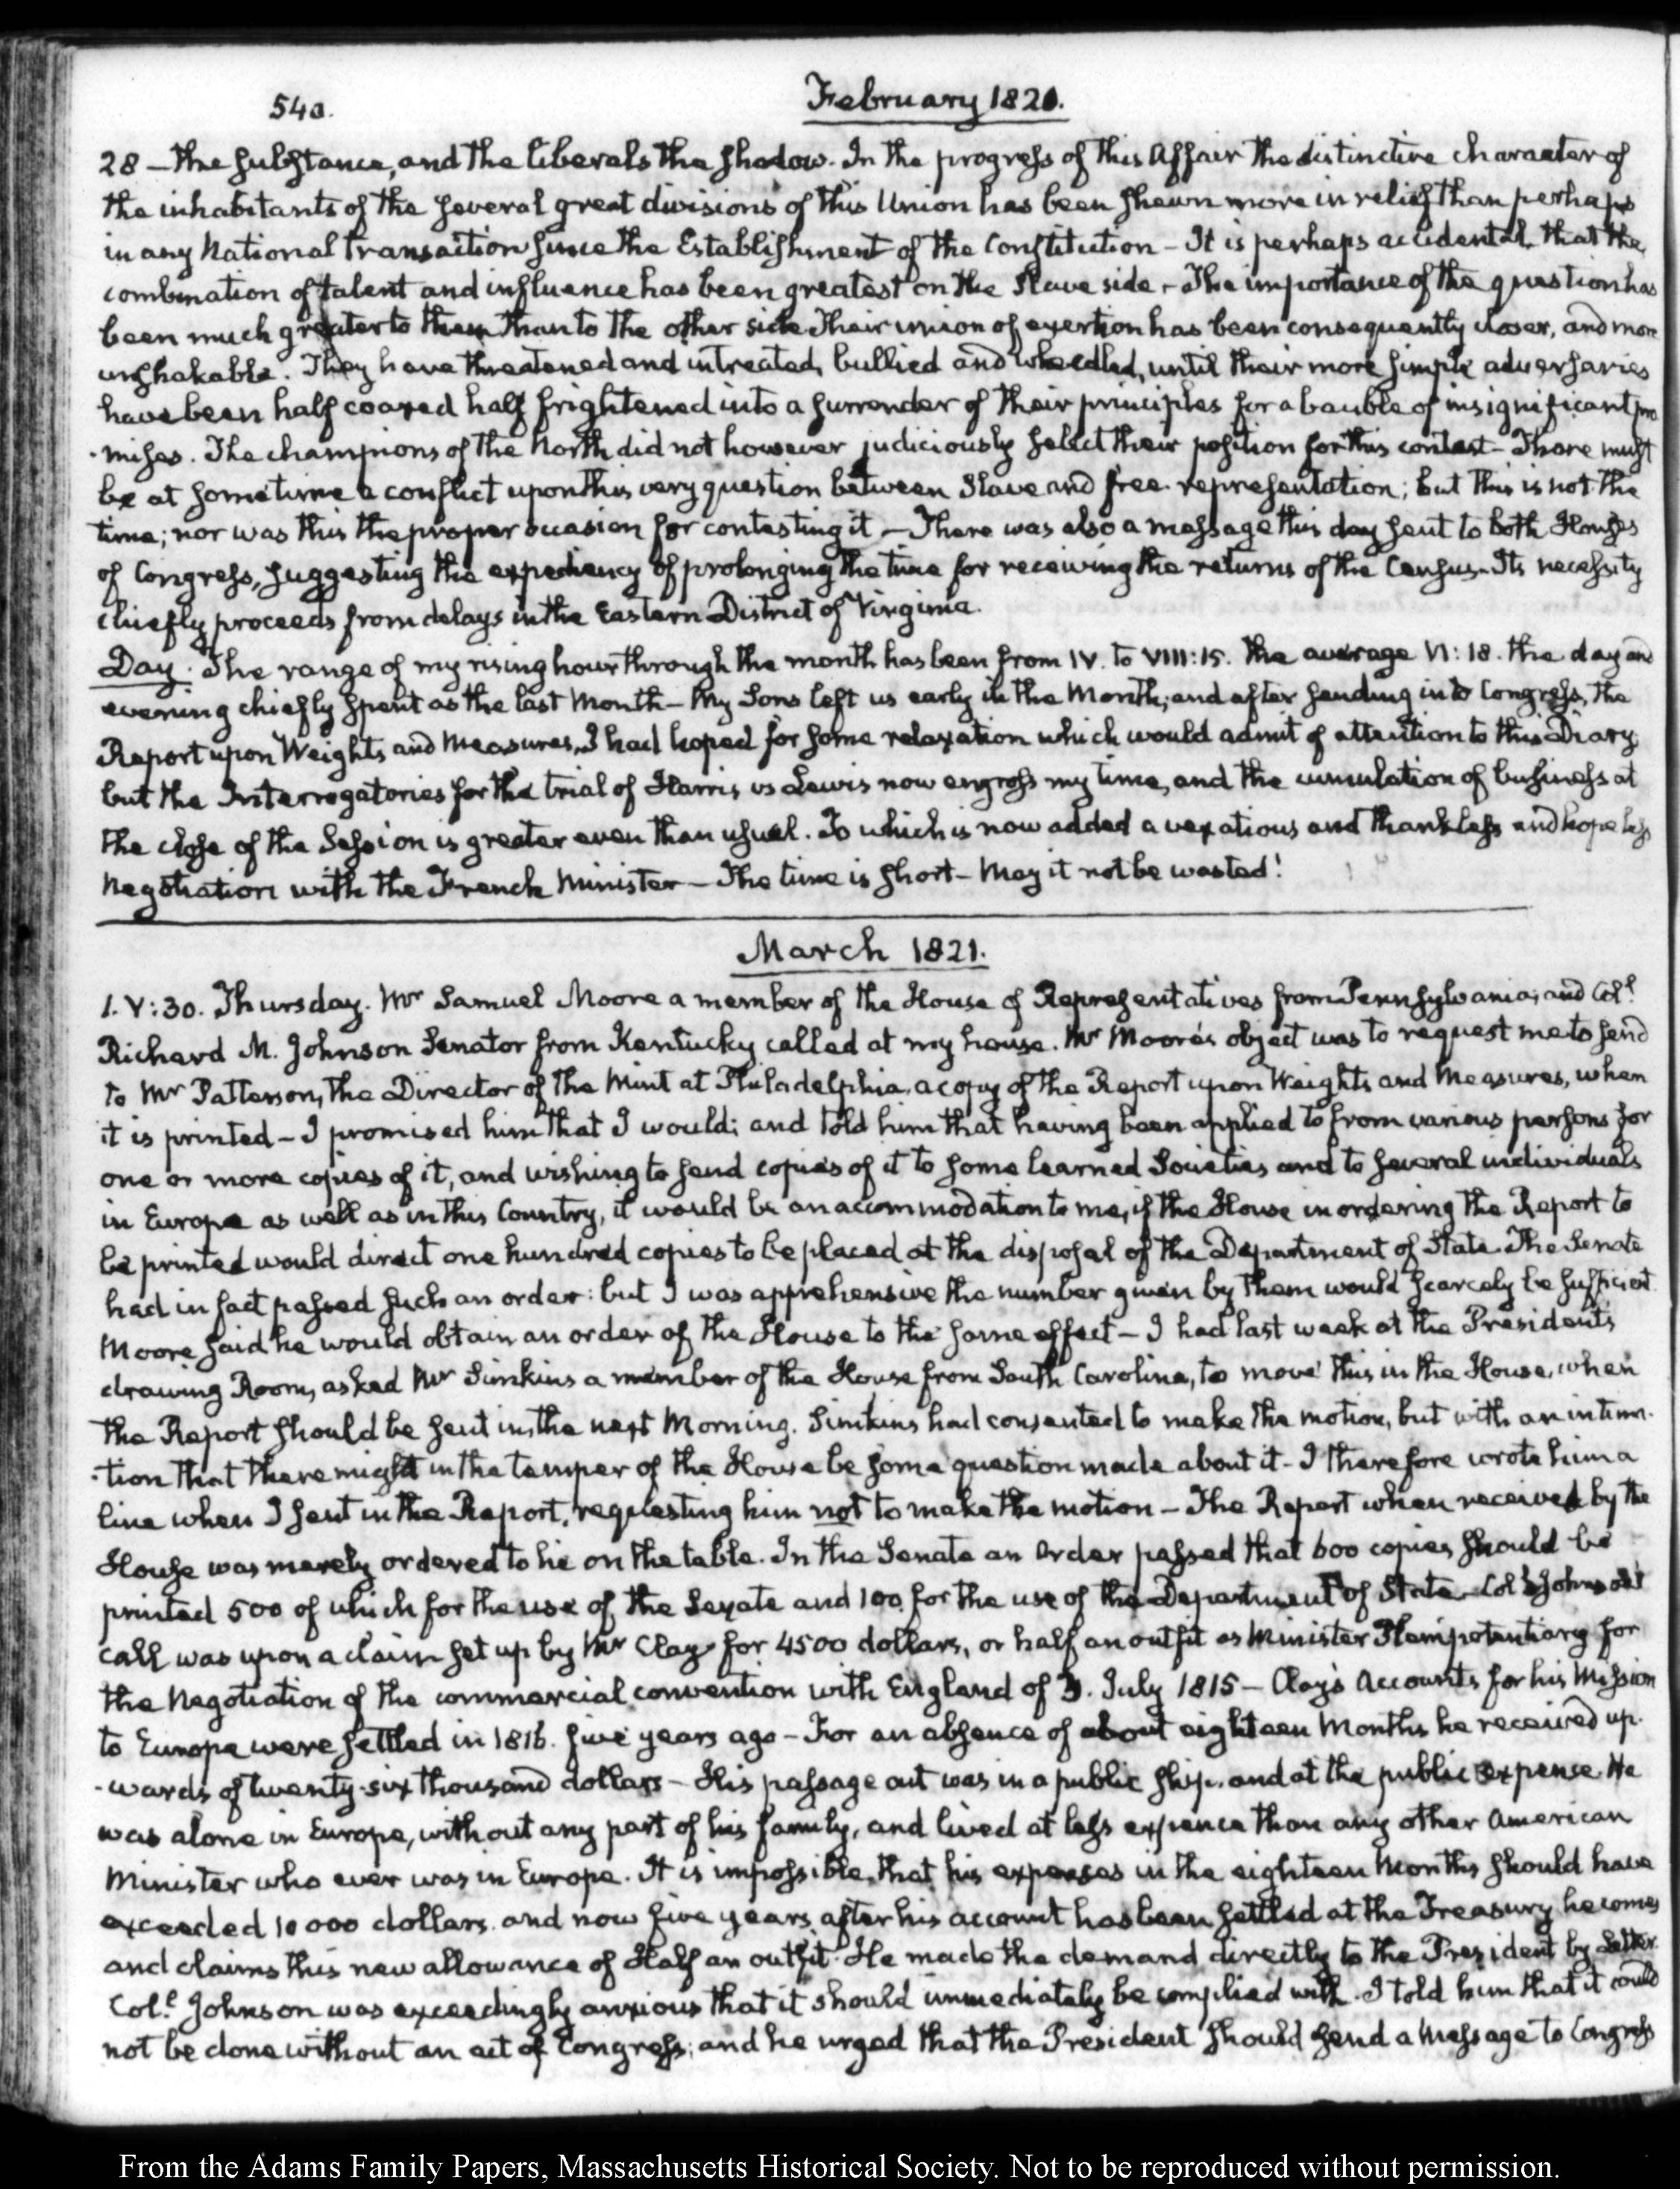 540.
February 1821.
28 – the substance, and the liberals the shadow. In the progress of this Affair the distinctive character of
the inhabitants of the several great divisions of this Union has been shewn more in relief than perhaps
in any National transaction since the Establishment of the Constitution – It is perhaps accidental that the
combination of talent and influence has been greatest on the slave side – The importance of the question has
been much greater to them than to the other side Their union of exertion has been consequently closer, and more
unshakable. They have threatened and intreated, bullied and wheedled, until their more simple adversaries
have been half coaxed half frightened into a surrender of their principles for a bauble of insignificant pro
-mises. The champions of the North did not however judiciously select their position for this contest – There must
be at some time a conflict upon this very question between Slave and free representation; but this is not the
time; nor was this the proper occasion for contesting it – There was also a message this day sent to both Houses
of Congress, suggesting the expediency of prolonging the time for receiving the returns of the Census – Its necessity
chiefly proceeds from delays in the Eastern District of Virginia.
Day. The range of my rising hour through the month has been from IV. to VIII:15. the average VI:18. the day and
evening chiefly spent as the last Month – My Sons left us early in the Month; and after sending in to Congress, the
Report upon Weights and Measures, I had hoped for some relaxation which would admit of attention to this Diary
but the Interrogatories for the trial of Harris vs Lewis now engross my time, and the cumulation of business at
the close of the Session is greater even than usual. To which is now added a vexatious and thankless and hopeless
Negotiation with the French Minister – The time is short – May it not be wasted!
March 1821.
1. V:30. Thursday. Mr Samuel Moore a member of the House of Representatives from Pennsylvania; and Coll.
Richard M. Johnson Senator from Kentucky called at my house. Mr Moore's object was to request me to send
to Mr Patterson, the Director of the Mint at Philadelphia, a copy of the Report upon Weights and Measures, when
it is printed – I promised him that I would; and told him that having been applied to from various persons for
one or more copies of it, and wishing to send copies of it to some learned Societies and to several individuals
in Europe as well as in this Country, it would be an accommodation to me, if the House in ordering the Report to
be printed would direct one hundred copies to be placed at the disposal of the Department of State. The Senate
had in fact passed such an order: but I was apprehensive the number given by them would scarcely be sufficient
Moore said he would obtain an order of the House to the same effect – I had last week at the Presidents
drawing Room, asked Mr Simkins a member of the House from South Carolina, to move this in the House, when
the Report should be sent in, the next Morning. Simkins had consented to make the motion, but with an intima-
-tion that there might in the temper of the House be some question made about it – I therefore wrote him a
line when I sent in the Report, requesting him not to make the motion – The Report when received by the
House was merely ordered to lie on the table. In the Senate an Order passed that 600 copies should be
printed 500 of which for the use of the Senate and 100 for the use of the Department of State – Coll Johnson's
call was upon a claim set up by Mr Clay for 4500 dollars, or half an outfit as Minister Plenipotentiary for
the Negotiation of the commercial convention with England of 3. July 1815 – Clay's Accounts for his Mission
to Europe were settled in 1816. five years ago – For an absence of about eighteen Months he received up-
-wards of twenty-six thousand dollars – His passage out was in a public ship, and at the public expence. He
was alone in Europe, without any part of his family, and lived at less expence than any other American
Minister who ever was in Europe. It is impossible, that his expenses in the eighteen Months should have
exceeded 10000 dollars. and now five years after his account has been settled at the Treasury he comes
and claims this new allowance of Half an outfit. He made the demand directly to the President by Letter.
Coll. Johnson was exceedingly anxious that it should immediately be complied with. I told him that it could
not be done without an act of Congress; and he urged that the President should send a Message to Congress
From the Adams Family Papers, Massachusetts Historical Society. Not to be reproduced without permission.